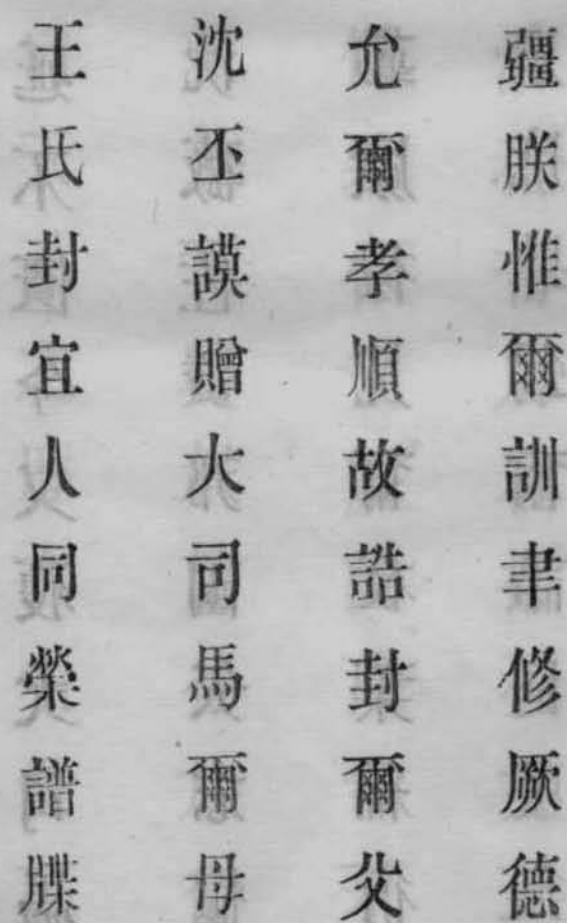 疆朕惟爾訓聿修厥德
允爾孝順故誥封爾父
沈丕謨贈大司馬爾母
王氏封宜人同榮譜牒